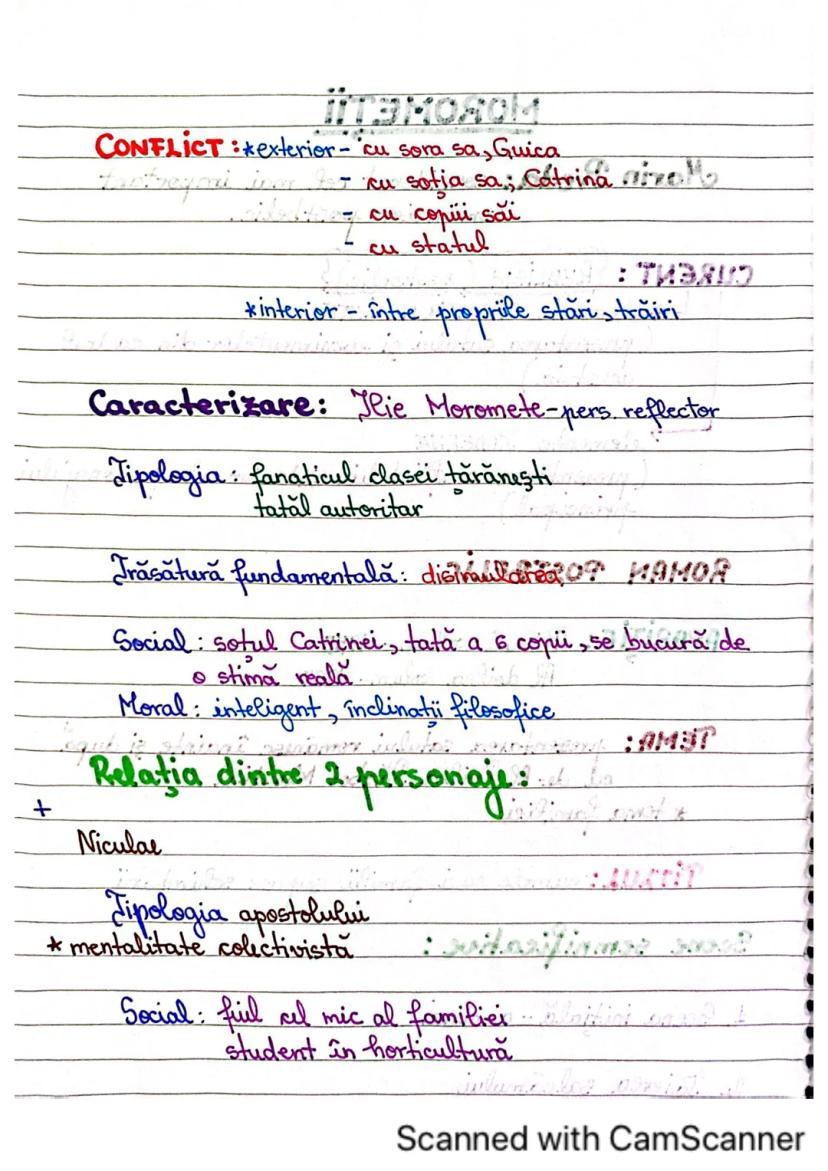 CONFLICT : *exterior - cu sora sa, Guica
- cu soția sa, Catrina
- cu copiii săi
- cu statul
*interior - între propriile stări, trăiri
Caracterizare: Ilie Moromete-pers. reflector
Tipologia : fanaticul clasei țărănești
tatăl autoritar
Trăsătură fundamentală: disimularea
Social : soțul Catrinei, tată a 6 copii, se bucură de
o stimă reală
Moral : inteligent, înclinații filosofice
Relația dintre 2 personaje:
+
Niculae
Tipologia apostolului
* mentalitate colectivistă
Social: fiul cel mic al familiei
student în horticultură
Scanned with CamScanner